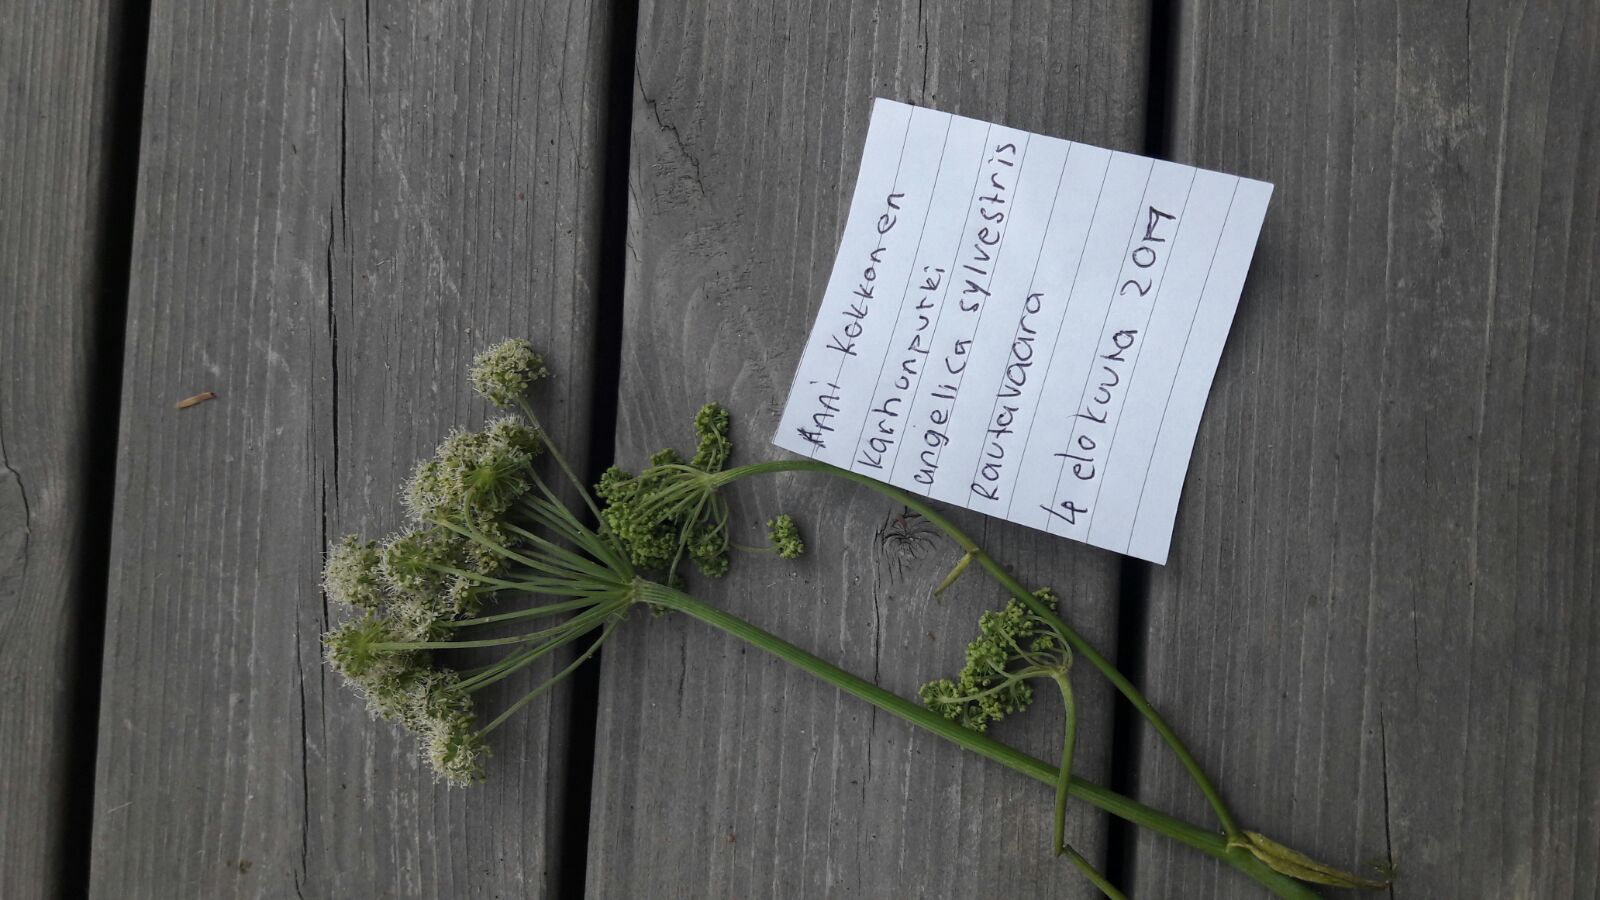 Anni Kokkonen
Karhunputki
angelica sylvestris
Rautavaara
4 elokuuta 2017